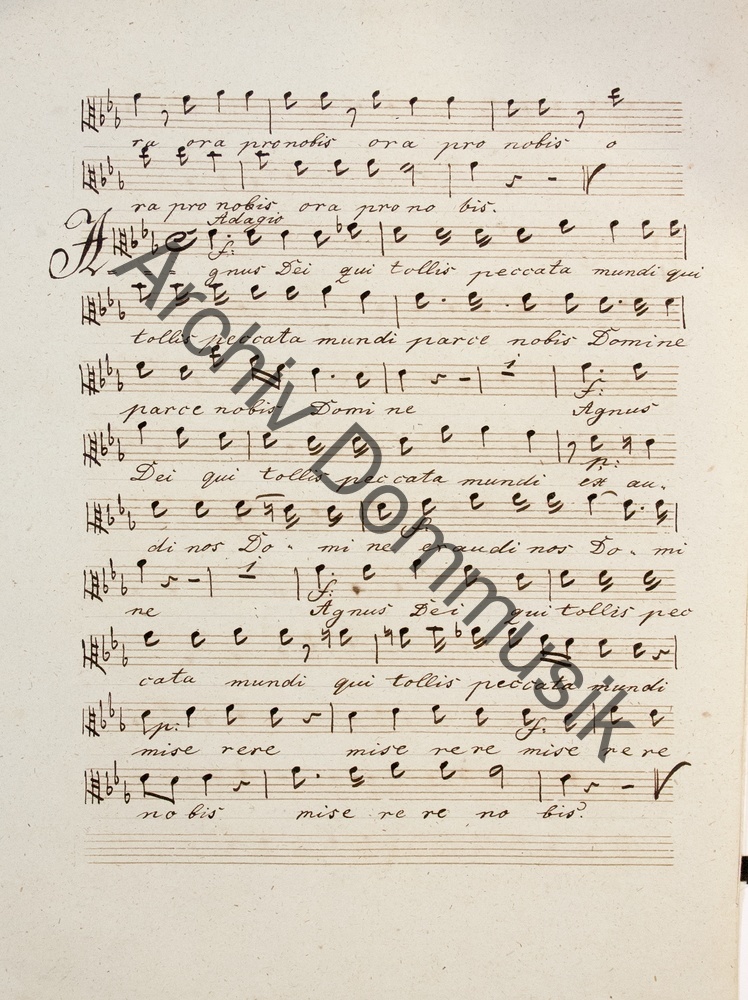 ra ora pro nobis ora pro nobis o
ra pro nobis ora pro no bis.
Adagio
f:
Agnus Dei qui tollis peccata mundi qui
tollis peccata mundi parce nobis Domine
f:
parce nobis Domi ne Agnus
p:
Dei qui tollis peccata mundi ex au-
f:
di nos Do - mi ne ex audi nos Do - mi
1
f:
ne Agnus Dei qui tollis pec
cata mundi qui tollis peccata mundi
p: f:
mise rere mise re re mise re re
no bis mise re re no bis.
Archiv Dommusik